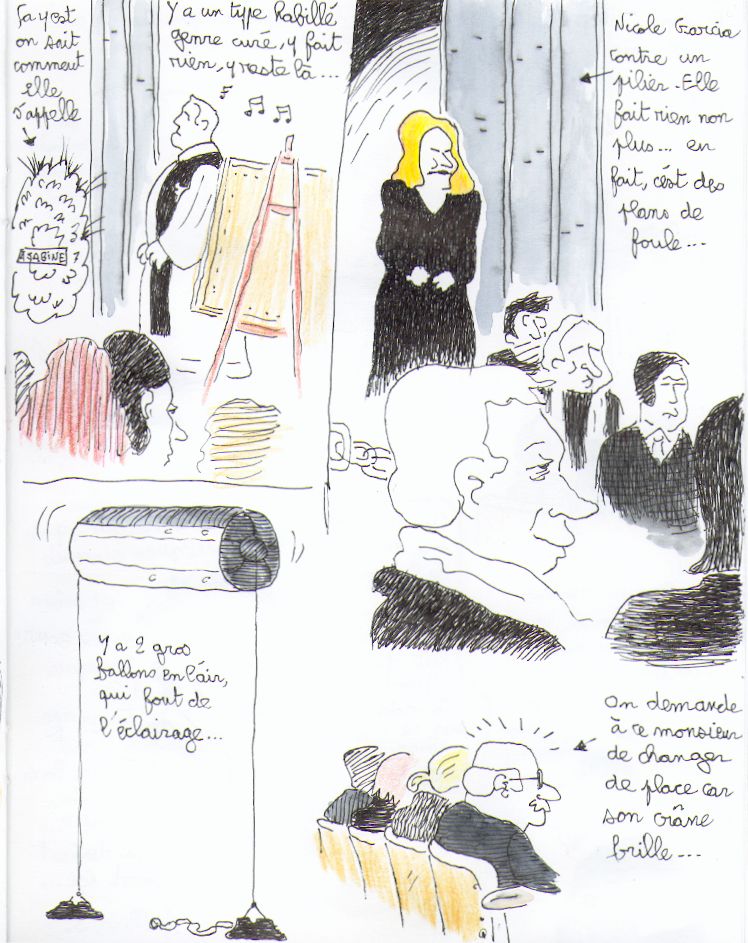 Ça y est
on sait
comment
elle
s'appelle
SABINE
Y a un type habillé
genre curé, y fait
rien, y reste là...
Nicole Garcia
contre un
pilier. Elle
fait rien non
plus... en
fait, c'est des
plans de
foule...
Y a 2 gros
ballons en l'air,
qui font de
l'éclairage...
On demande
à ce monsieur
de changer
de place car
son crâne
brille...